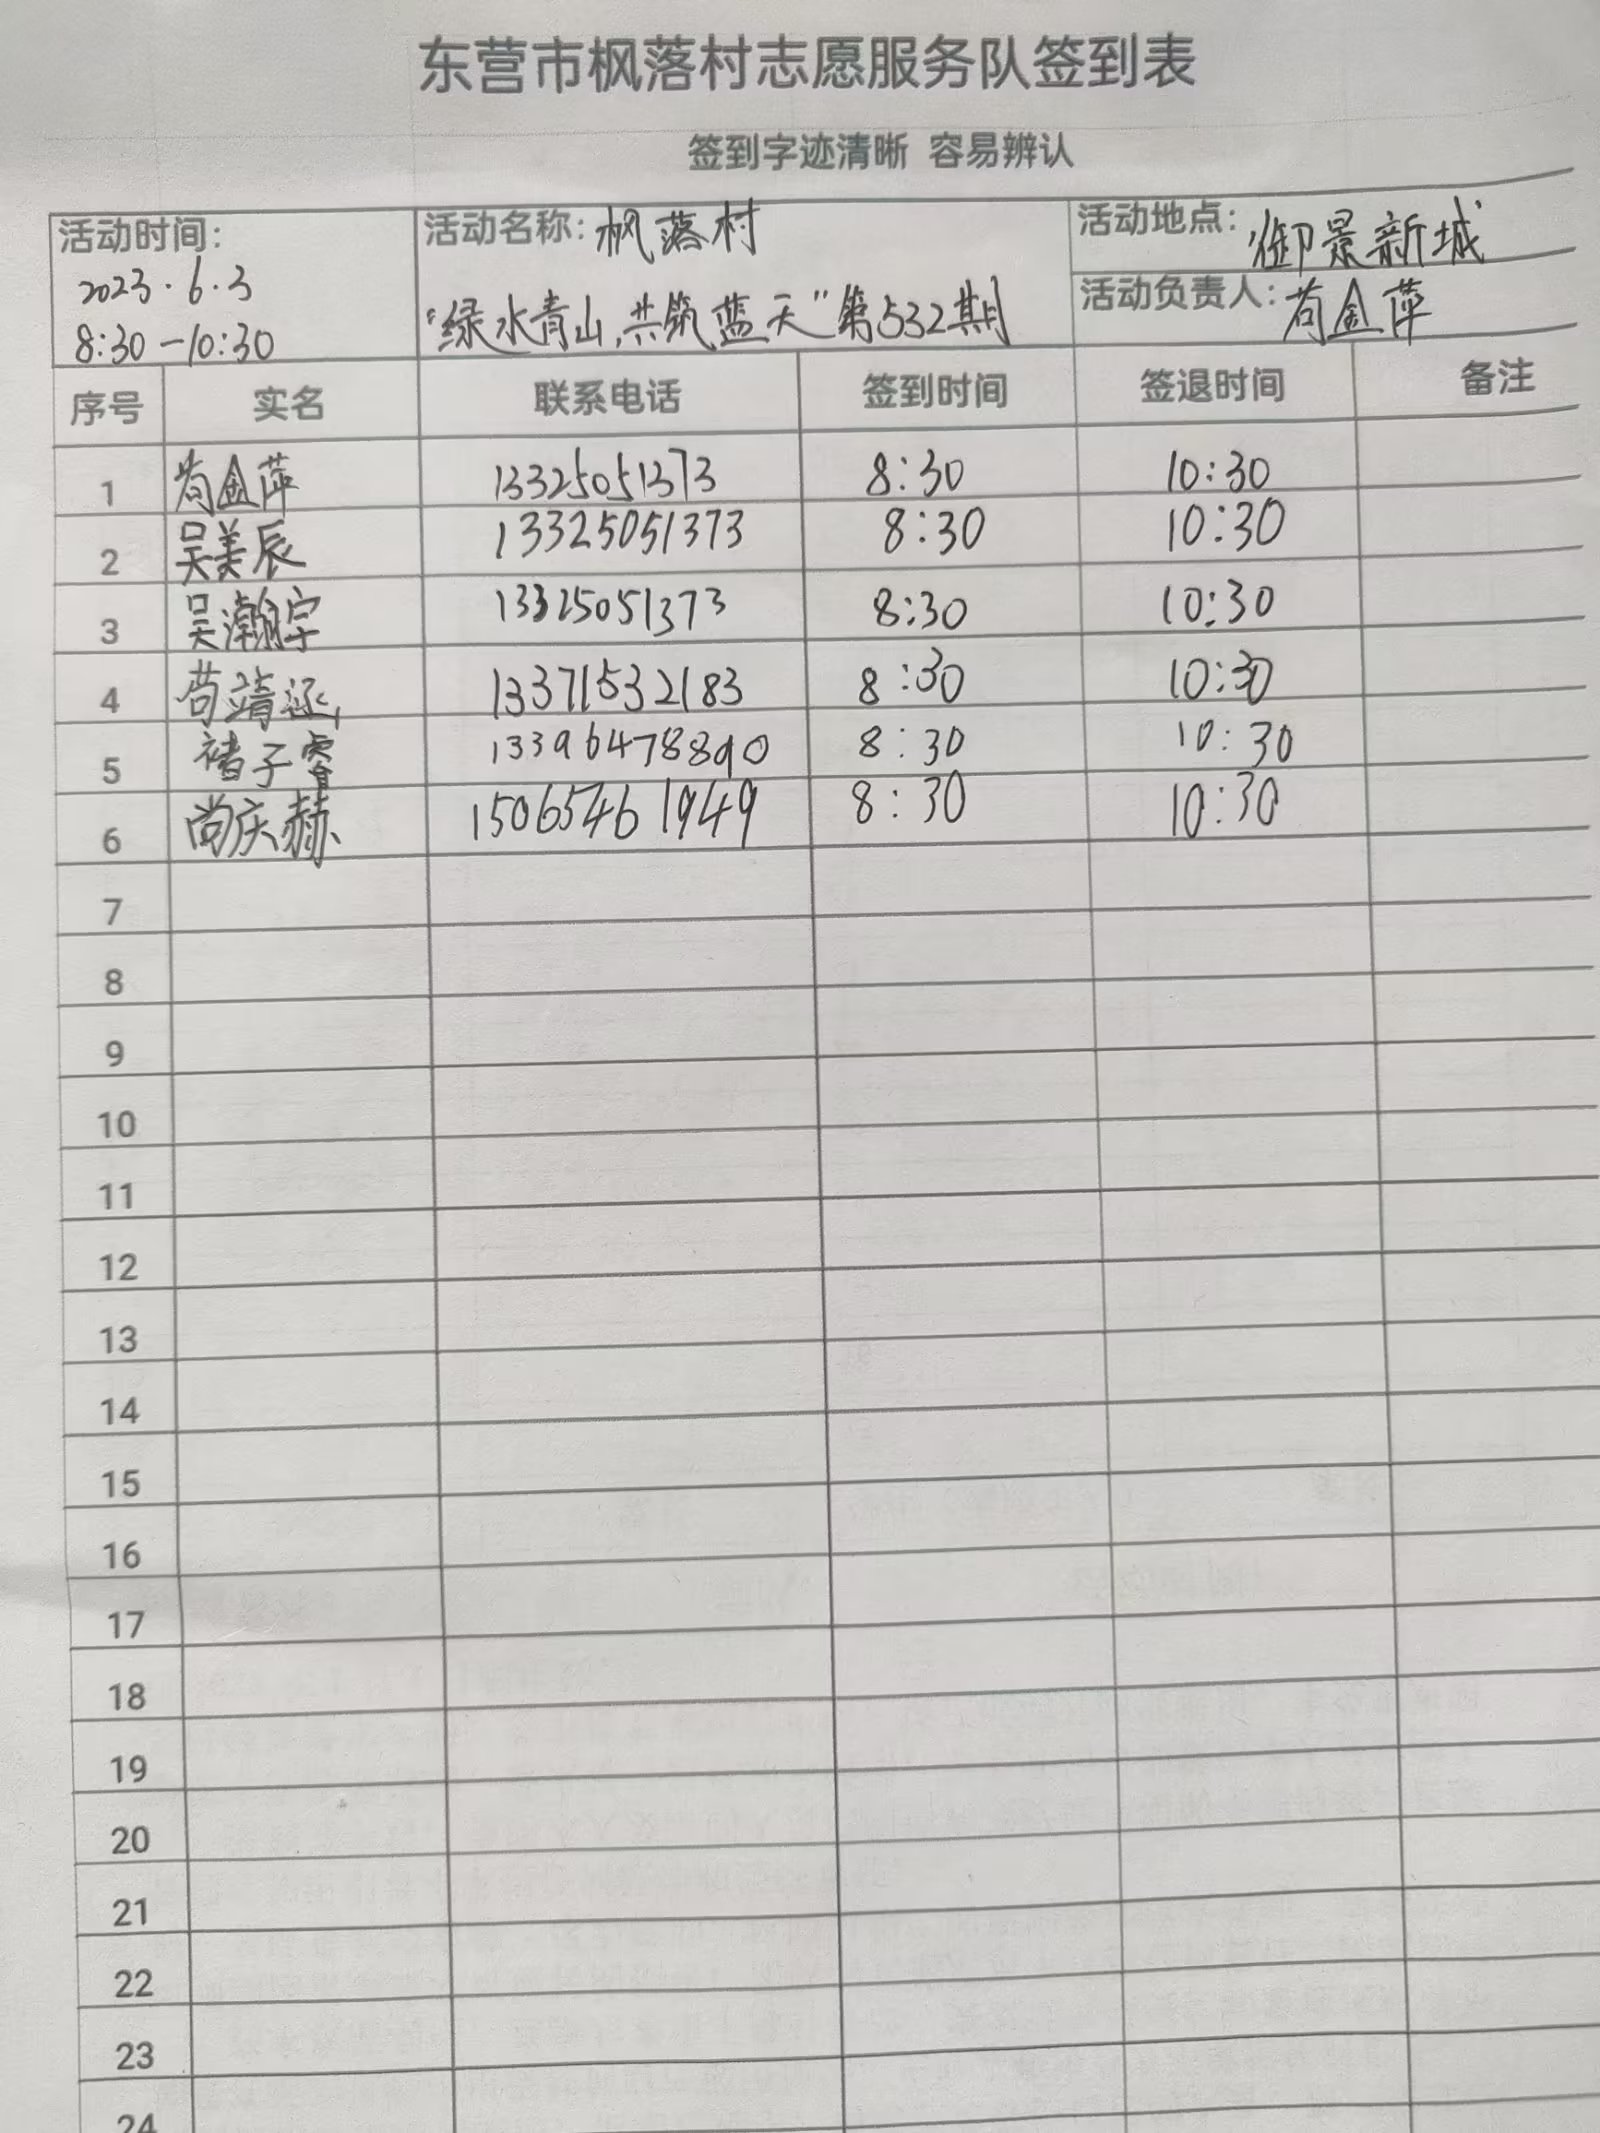 东营市枫落村志愿服务队签到表
签到字迹清晰 容易辨认
活动时间: 2023.6.3 8:30-10:30
活动名称: 枫落村 “绿水青山,共筑蓝天”第532期
活动地点: 御景新城
活动负责人: 苟金萍
序号 实名 联系电话 签到时间 签退时间 备注
1 苟金萍 13325051373 8:30 10:30
2 吴美辰 13325051373 8:30 10:30
3 吴瀚宇 13325051373 8:30 10:30
4 苟靖涵 13371532183 8:30 10:30
5 褚子睿 13396478890 8:30 10:30
6 尚庆赫 15065461949 8:30 10:30
7
8
9
10
11
12
13
14
15
16
17
18
19
20
21
22
23
24